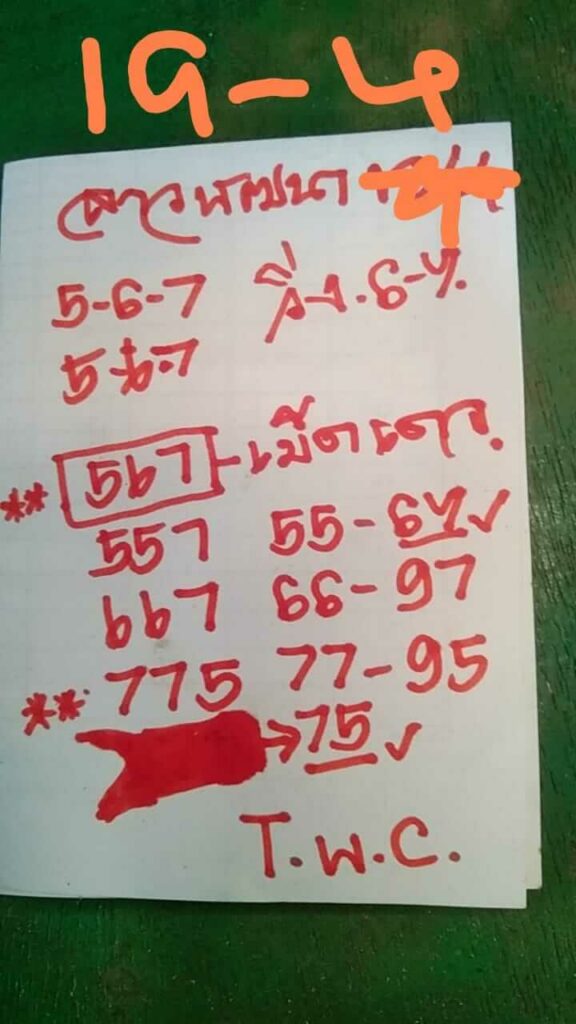 19-4
ลาวพัฒนา
5-6-7 วิ่ง.6-7.
5-6-7
** 567 - เม็ดเดียว.
557 55-67✓
667 66-97
** 775 77-95
→75✓
T.W.C.